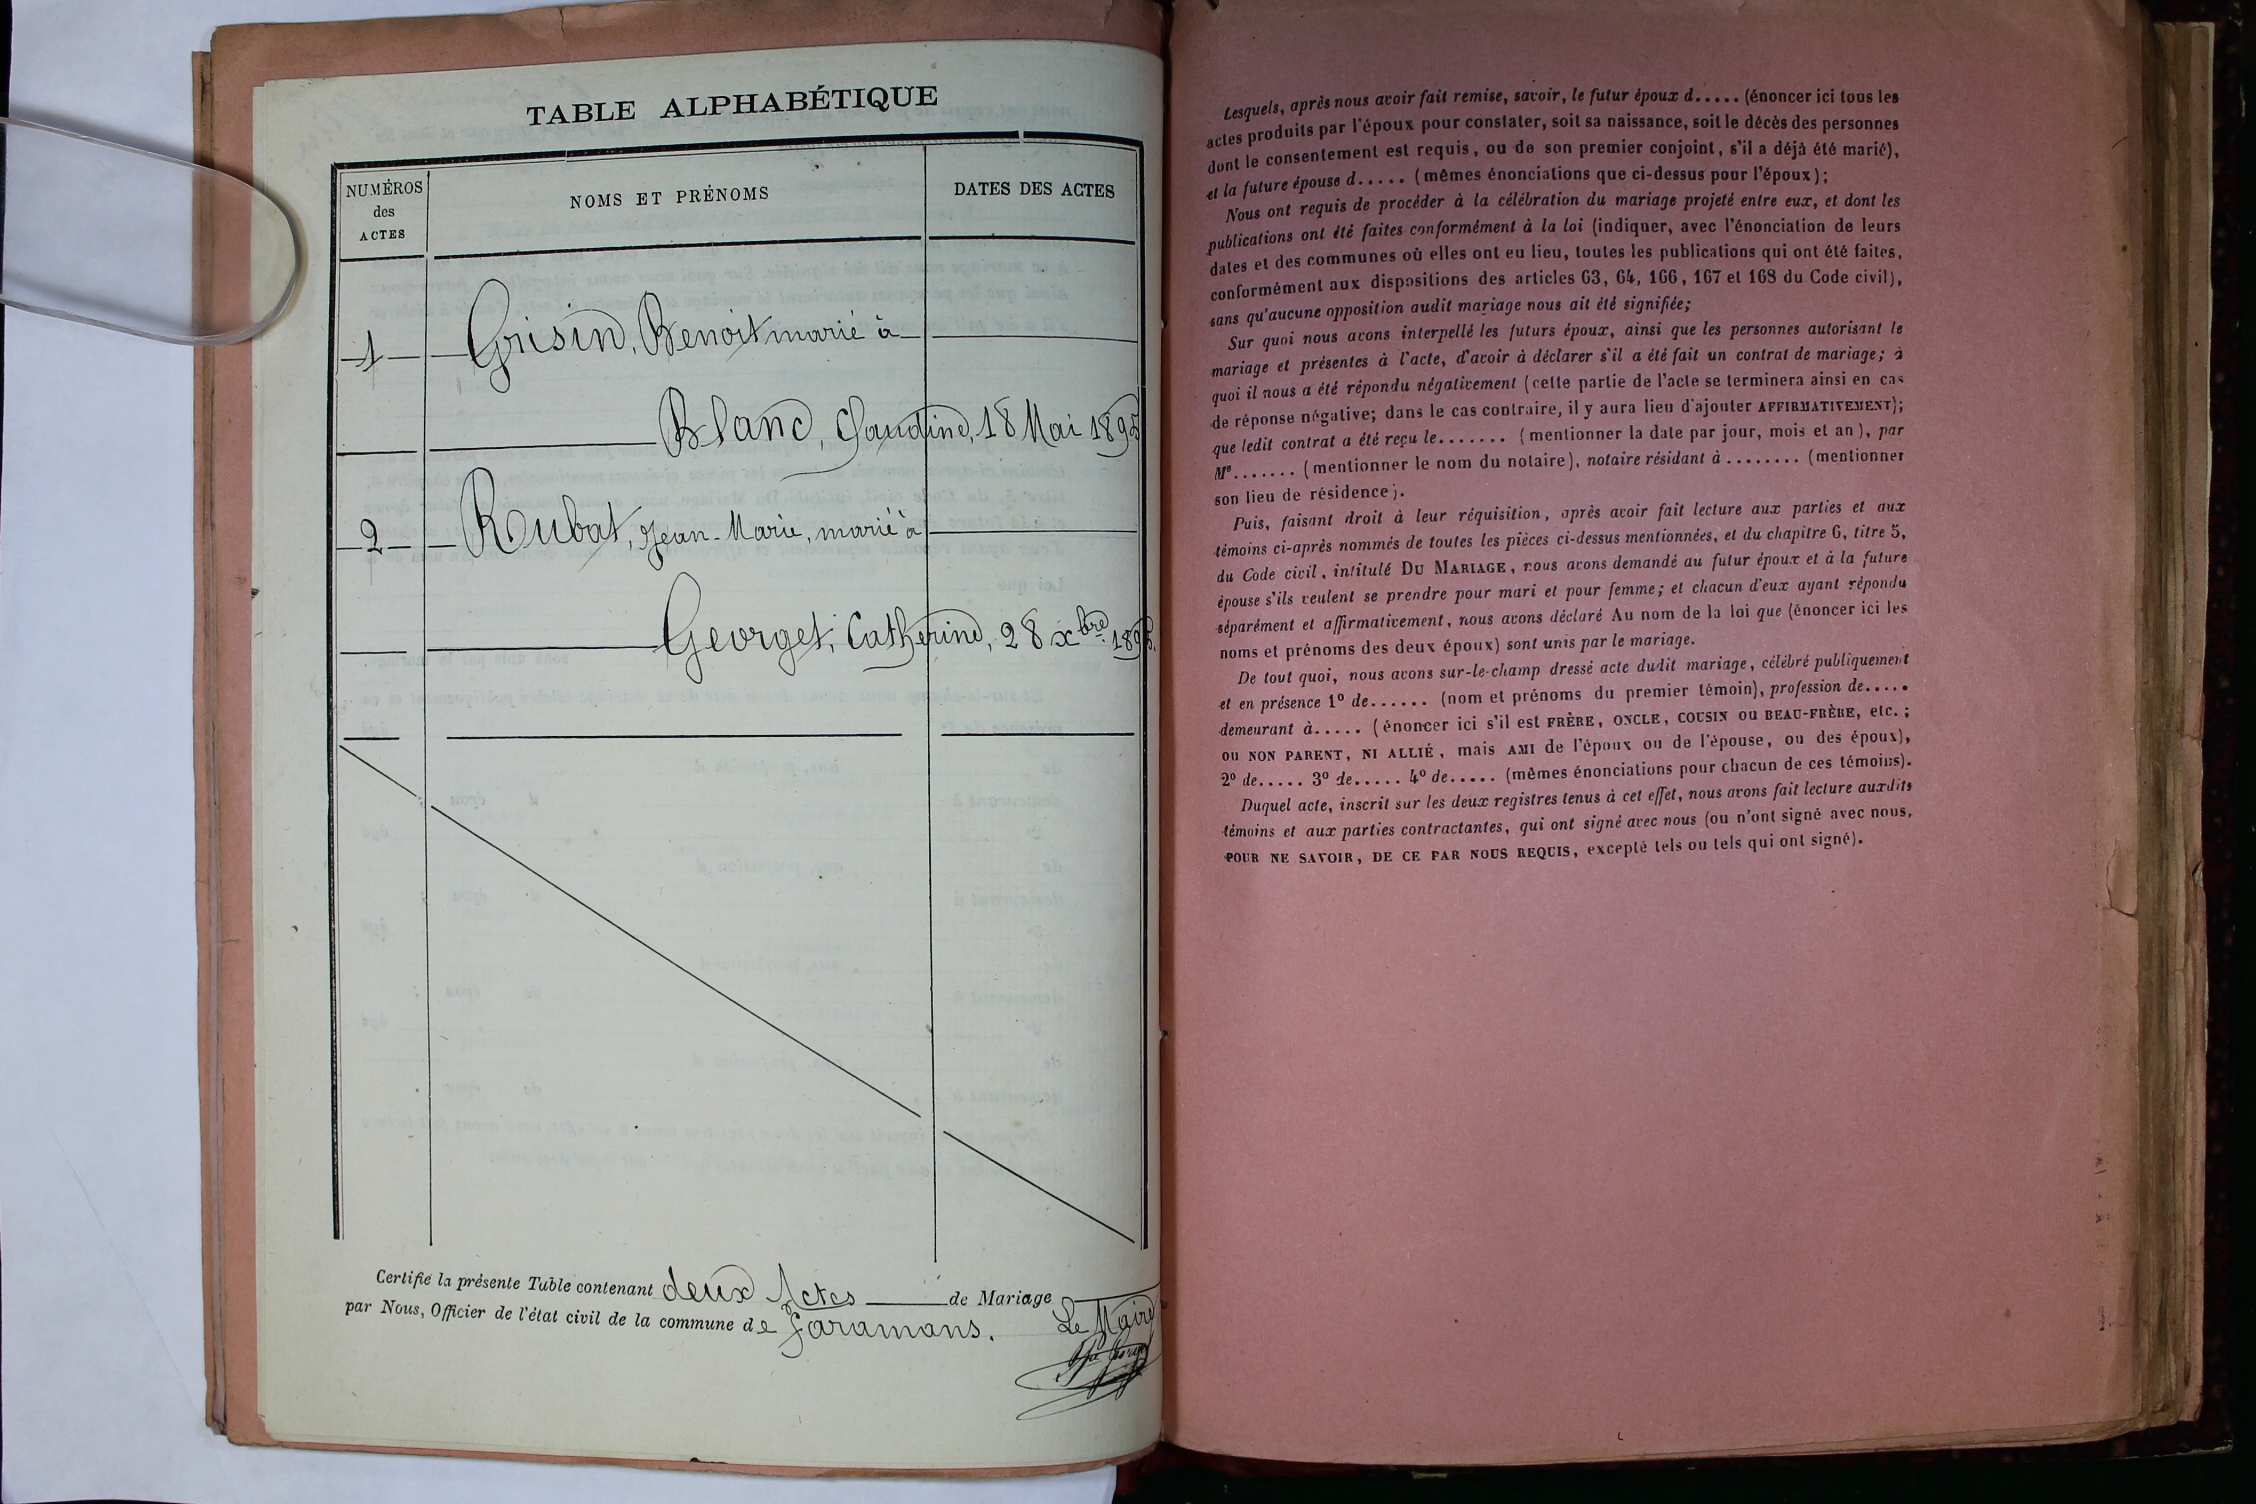 TABLE ALPHABÉTIQUE
NUMÉROS
des
ACTES
NOMS ET PRÉNOMS
DATES DES ACTES
1 Grisin, Benoit marié à
Blanc, Claudine, 18 Mai 1895
2 Rubat, Jean-Marie, marié à
Georget, Catherine, 28 xbre 1895.
Certifie la présente Table contenant deux Actes de Mariage
par Nous, Officier de l'état civil de la commune de Faramans.
Le Maire
Lesquels, après nous avoir fait remise, savoir, le futur époux d..... (énoncer ici tous les
actes produits par l'époux pour constater, soit sa naissance, soit le décès des personnes
dont le consentement est requis, ou de son premier conjoint, s'il a déjà été marié),
et la future épouse d..... (mêmes énonciations que ci-dessus pour l'époux);
Nous ont requis de procéder à la célébration du mariage projeté entre eux, et dont les
publications ont été faites conformément à la loi (indiquer, avec l'énonciation de leurs
dates et des communes où elles ont eu lieu, toutes les publications qui ont été faites,
conformément aux dispositions des articles 63, 64, 166, 167 et 168 du Code civil),
sans qu'aucune opposition audit mariage nous ait été signifiée;
Sur quoi nous avons interpellé les futurs époux, ainsi que les personnes autorisant le
mariage et présentes à l'acte, d'avoir à déclarer s'il a été fait un contrat de mariage; à
quoi il nous a été répondu négativement (cette partie de l'acte se terminera ainsi en cas
de réponse négative; dans le cas contraire, il y aura lieu d'ajouter AFFIRMATIVEMENT);
que ledit contrat a été reçu le....... (mentionner la date par jour, mois et an), par
Me....... (mentionner le nom du notaire), notaire résidant à ........ (mentionner
son lieu de résidence).
Puis, faisant droit à leur réquisition, après avoir fait lecture aux parties et aux
témoins ci-après nommés de toutes les pièces ci-dessus mentionnées, et du chapitre 6, titre 5,
du Code civil, intitulé DU MARIAGE, nous avons demandé au futur époux et à la future
épouse s'ils veulent se prendre pour mari et pour femme; et chacun d'eux ayant répondu
séparément et affirmativement, nous avons déclaré Au nom de la loi que (énoncer ici les
noms et prénoms des deux époux) sont unis par le mariage.
De tout quoi, nous avons sur-le-champ dressé acte dudit mariage, célébré publiquement
et en présence 1º de...... (nom et prénoms du premier témoin), profession de.....
demeurant à..... (énoncer ici s'il est FRÈRE, ONCLE, COUSIN OU BEAU-FRÈRE, etc.;
OU NON PARENT, NI ALLIÉ, mais AMI de l'époux ou de l'épouse, ou des époux),
2º de..... 3º de..... 4º de..... (mêmes énonciations pour chacun de ces témoins).
Duquel acte, inscrit sur les deux registres tenus à cet effet, nous avons fait lecture auxdits
témoins et aux parties contractantes, qui ont signé avec nous (ou n'ont signé avec nous,
POUR NE SAVOIR, DE CE PAR NOUS REQUIS, excepté tels ou tels qui ont signé).